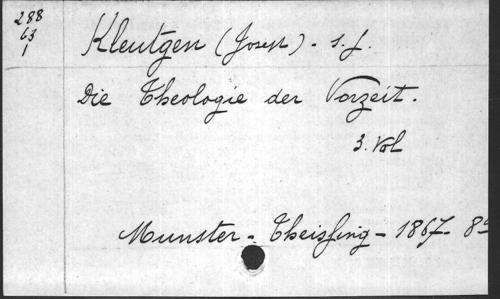 288
63
1
Kleutgen (Josep) - S. J.
Die Theologie der Vorzeit.
3. Vol
Munster - Theissing - 1867 - 8º